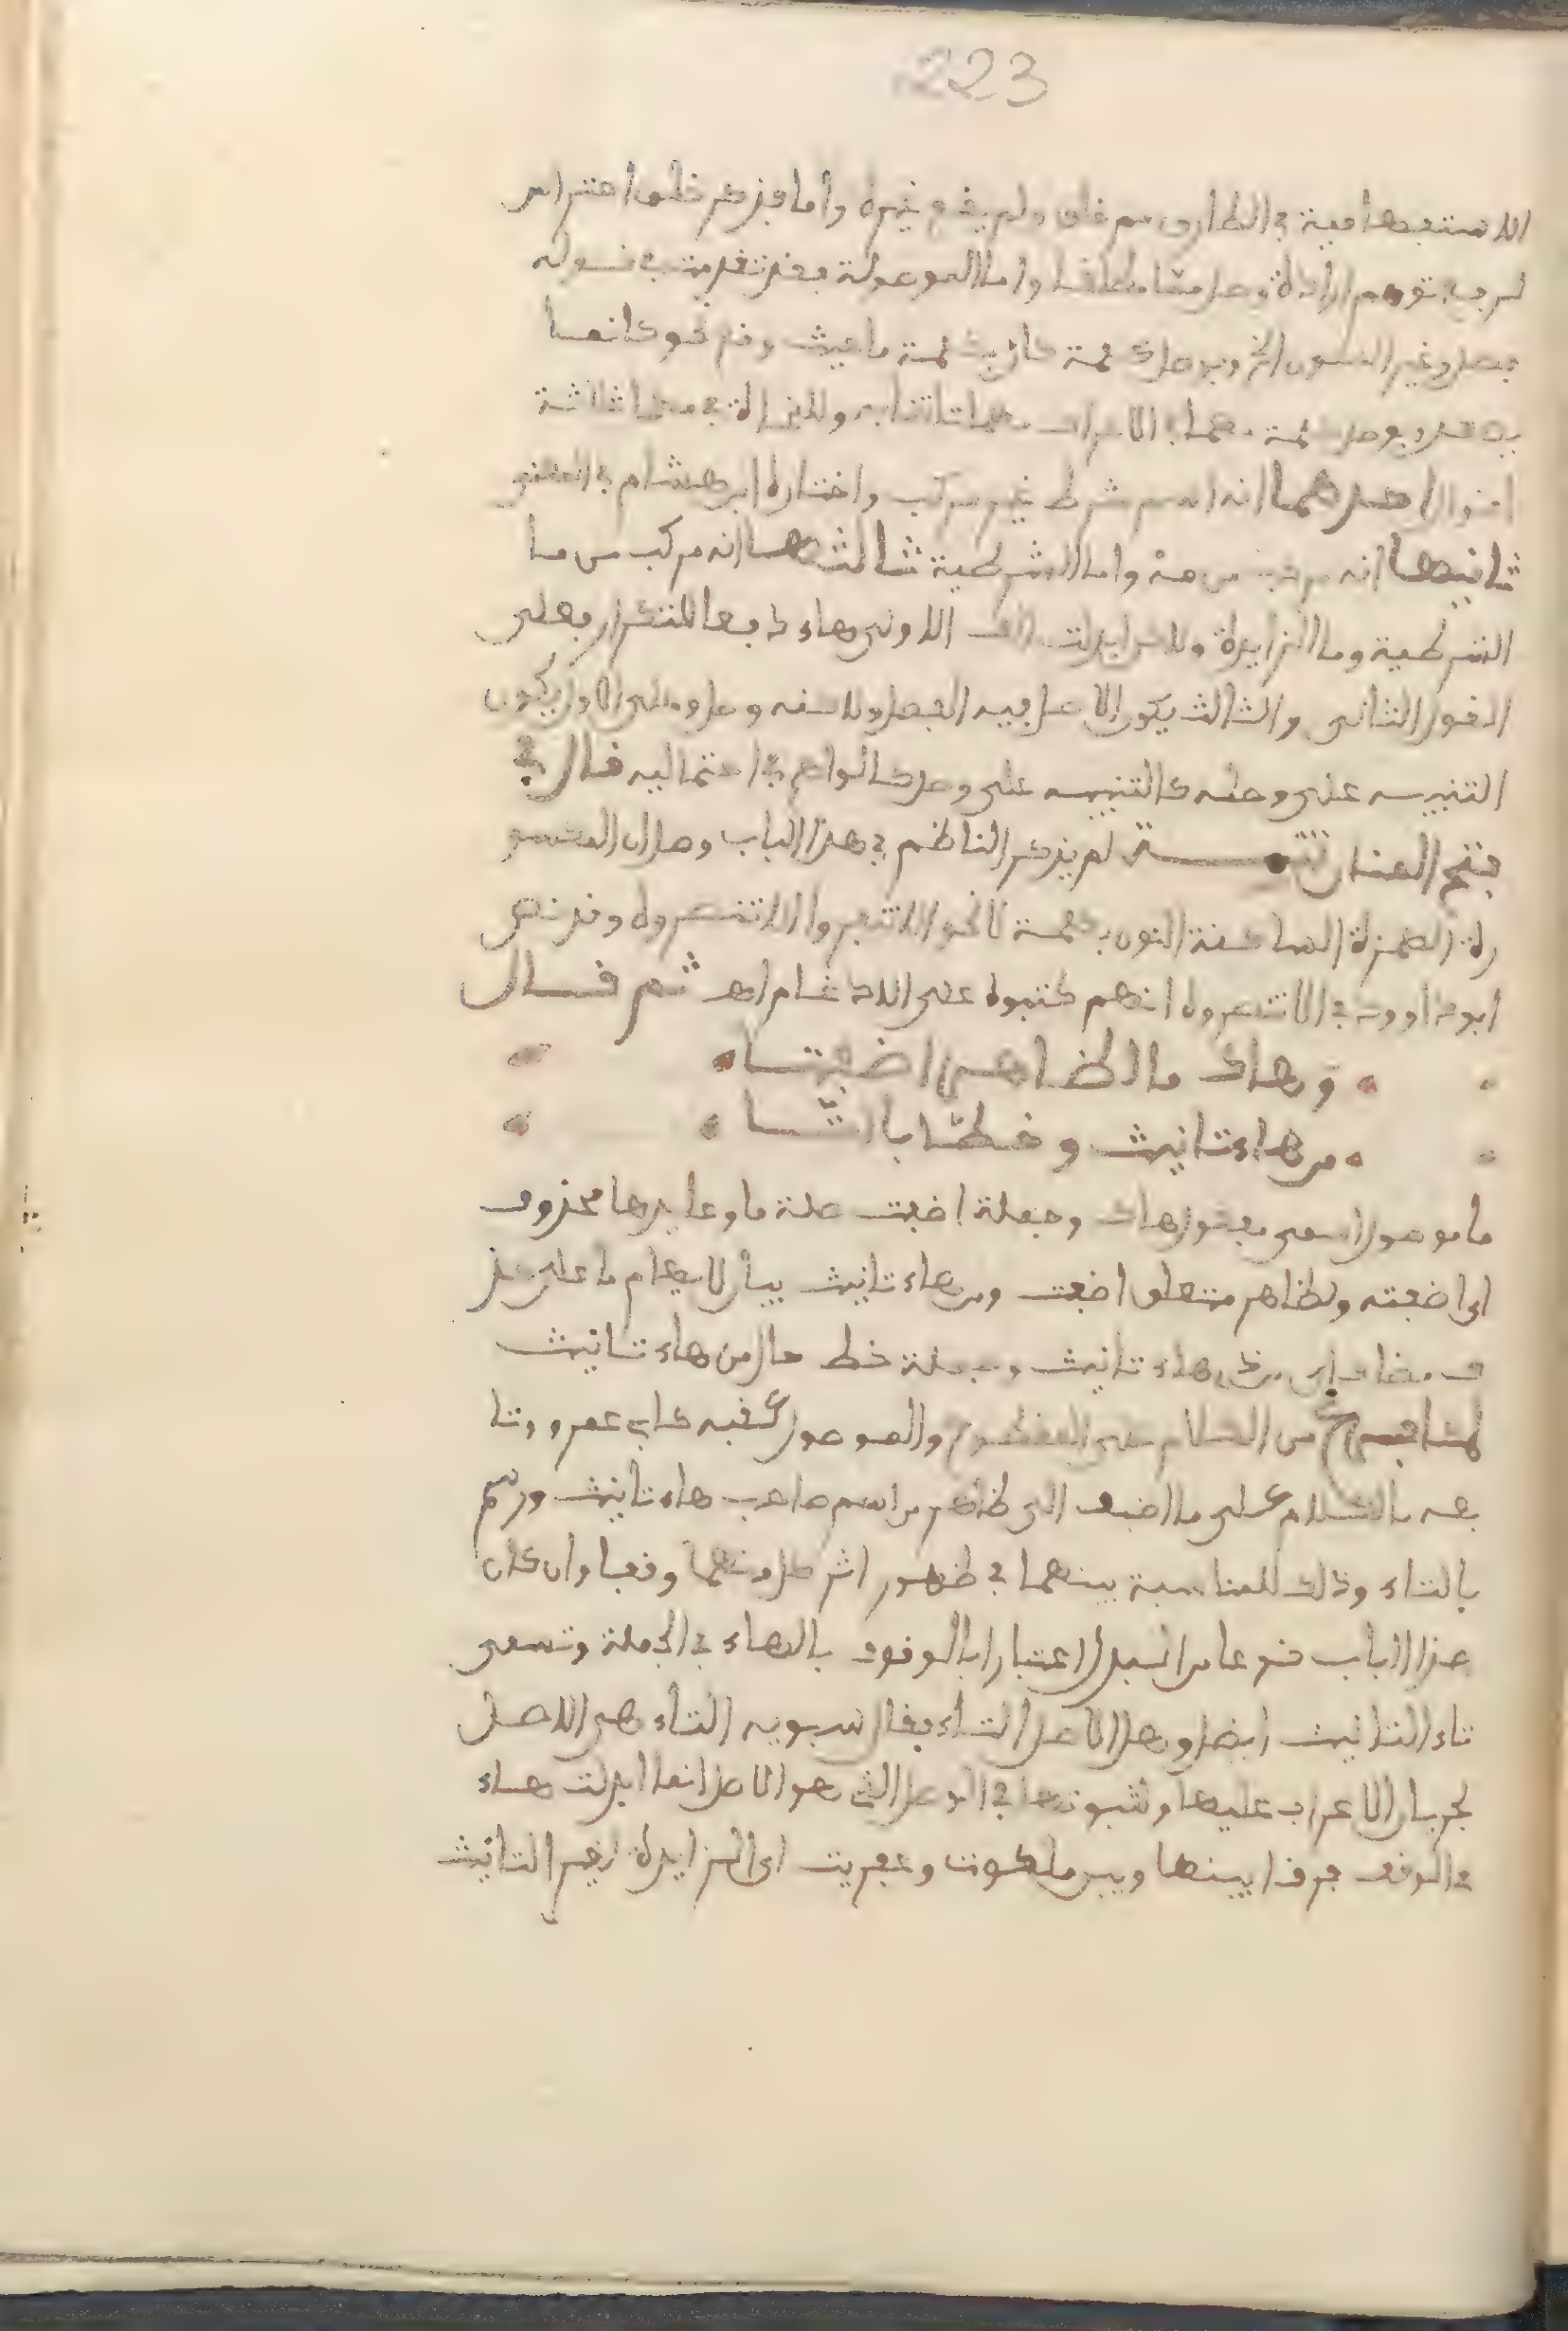 223
الاستفهامية في الطارق مم خلق ولم يقع غيره واما فذكر خلق احترا من
توهم ارادة وصل ممّا مطلقا واما الموصولة فقد تقدمت في قوله
فصل وغير النون الخ ويوصل كلمة ما حيث وقع نحو كانما
مهما الاعراف مهما تاتنا به وللنحاة في مهما ثلاثة
اقوال احدهما انه اسم شرط غير مركب واختاره ابن هشام في المغني
ثانيها انه مركب من مه وما الشرطية ثالثها انه مركب من ما
الشرطية وما الزايدة ولكن ابدلت الف الاولى هاء دفعا للتكرار فعلى
القول الثاني والثالث يكون الاصل فيه الفصل ولاكنه وصل وعلى الاول يكون
التنبيه على وصله كالتنبيه على وصل كالوا هم في احتماليه قال في
فتح المنان تتمـــة لم يذكر الناظم في هذا الباب وصل ان المكسو
رة الهمزة الساكنة النون بكلمة لا نحو الا تنفروا الا تنصروه وقد نص
ابو داوود في الا تنصروه انهم كتبوه على الادغام اهـ ثم قـــال
وهاك ما لظاهر اضفتا
من هاء تانيث وخطّا بالتّا
ما موصول اسمي مفعول هاك وجملة اضفت صلة ما وعايدها محذوف
اى اضفته ولظاهر متعلق اضفت ومن هاء تانيث بيان لابهام ما على حذ
ف مضاف اى من ذى هاء تانيث وجملة خط حال من هاء تانيث
من الكلام على المقطوع والموصول عقبه كابي عمرو وتا
بعه بالكلام على ما اضيف الى ظاهر من اسم صاحب هاء تانيث ورسم
بالتاء وذلك للمناسبة بينهما في ظهور اثر كل منهما وقفا وان كان
هذا الباب نوعا من البدل اعتبارا بالوقف بالهاء في الجملة وتسمى
تاء التانيث ايضا وهل الاصل التاء فقال سبويه التاء هي الاصل
لجريان الاعراب عليها ولثبوتها في الوصل الذي هو الاصل انما ابدلت هاء
في الوقف فرقا بينها وبين ملكوت وعفريت اى الزايدة لغير التانيث